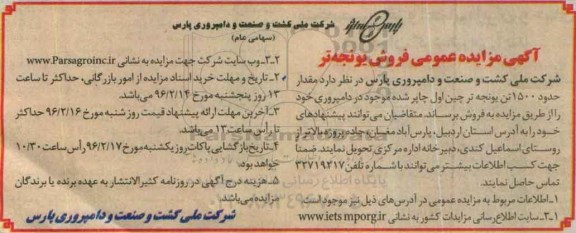 شرکت ملی کشت و صنعت و دامپروری پارس
(سهامی عام)
آگهی مزایده عمومی فروش یونجه‌تر
شرکت ملی کشت و صنعت و دامپروری پارس در نظر دارد مقدار
حدود ۱۵۰۰تن یونجه تر چین اول چاپر شده موجود در دامپروری خود
را از طریق مزایده به فروش برساند. متقاضیان می‌توانند پیشنهادهای
خود را به آدرس استان اردبیل، پارس آباد مغان، جاده پروژه بالاتر از
روستای اسماعیل کندی، دبیرخانه اداره مرکزی تحویل نمایند. ضمناً
جهت کسب اطلاعات بیشتر می‌توانند با شماره تلفن ۳۲۷۱۹۲۱۷
تماس حاصل نمایند.
۱ـ اطلاعات مربوط به مزایده عمومی در آدرس‌های ذیل نیز موجود است:
۱ـ۳ـ سایت اطلاع‌رسانی مزایدات کشور به نشانی www.iets mporg.ir
۲ـ۳ـ وب سایت شرکت جهت مزایده به نشانی www.Parsagroinc.ir
۲ـ تاریخ و مهلت خرید اسناد مزایده از امور بازرگانی، حداکثر تا ساعت
۱۳ روز پنجشنبه مورخ ۹۶/۲/۱۴ می‌باشد.
۳ـ آخرین مهلت ارائه پیشنهاد قیمت روز شنبه مورخ ۹۶/۲/۱۶ حداکثر
تا رأس ساعت ۱۳ می‌باشد.
۴ـ تاریخ بازگشایی پاکات روز یکشنبه مورخ ۹۶/۲/۱۷ رأس ساعت ۱۰/۳۰
خواهد بود.
۵ـ هزینه درج آگهی در روزنامه کثیرالانتشار به عهده برنده یا برندگان
مزایده می‌باشد.
شرکت ملی کشت و صنعت و دامپروری پارس